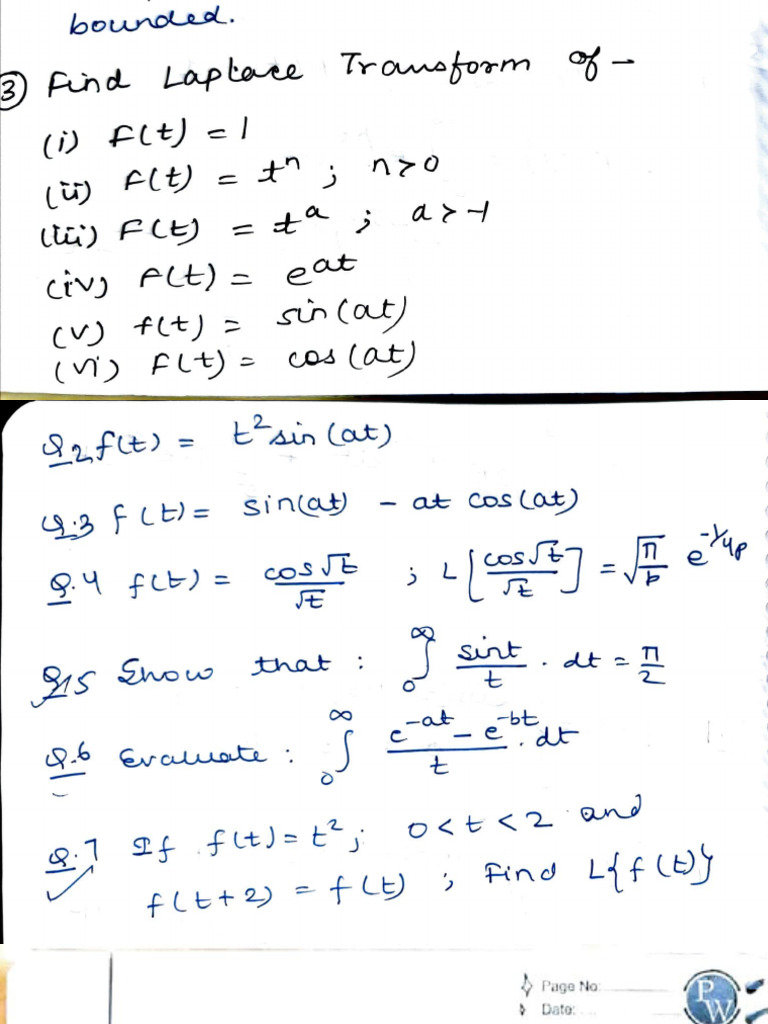 bounded.
③ Find Laplace Transform of –
(i) F(t) = 1
(ii) F(t) = tⁿ ; n > 0
(iii) F(t) = tᵃ ; a > -1
(iv) F(t) = eᵃᵗ
(v) f(t) = sin(at)
(vi) F(t) = cos(at)
Q.2 f(t) = t² sin(at)
Q.3 f(t) = sin(at) - at cos(at)
Q.4 f(t) = cos√t/√t ; L[cos√t/√t] = √(π/p) e^(-1/4p)
Q.5 Show that : ∫₀^∞ sint/t . dt = π/2
Q.6 Evaluate : ∫₀^∞ (e^(-at) - e^(-bt))/t . dt
Q.7 If f(t) = t² ; 0 < t < 2 and
f(t+2) = f(t) ; Find L{f(t)}
Page No:
Date:
PW